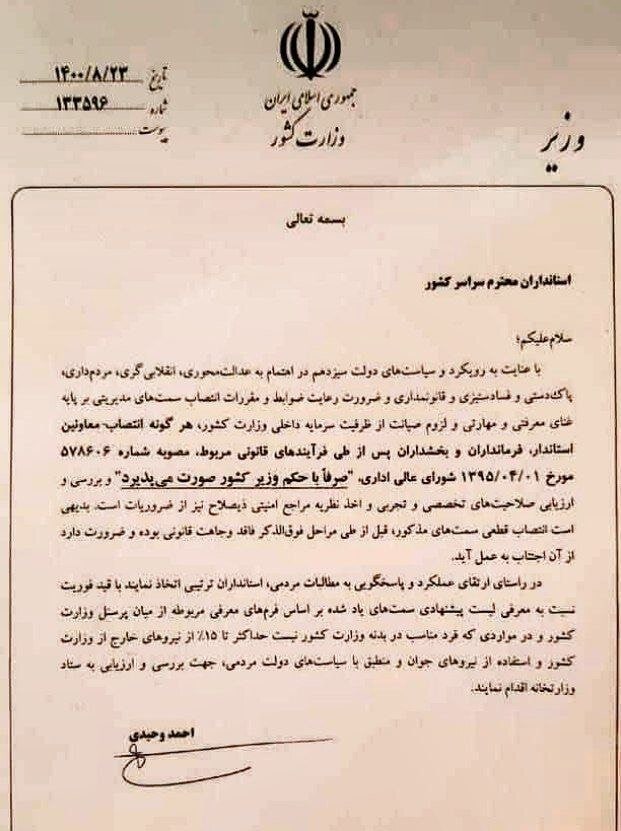 جمهوری اسلامی ایران
وزارت کشور
وزیر
تاریخ ۱۴۰۰/۸/۲۳
شماره ۱۳۳۵۹۶
پیوست
بسمه تعالی
استانداران محترم سراسر کشور
سلام علیکم؛
با عنایت به رویکرد و سیاست‌های دولت سیزدهم در اهتمام به عدالت‌محوری، انقلابی‌گری، مردم‌داری،
پاک‌دستی و فسادستیزی و قانونمداری و ضرورت رعایت ضوابط و مقررات انتصاب سمت‌های مدیریتی بر پایه
غنای معرفتی و مهارتی و لزوم صیانت از ظرفیت سرمایه داخلی وزارت کشور، هر گونه انتصاب معاونین
استاندار، فرمانداران و بخشداران پس از طی فرآیندهای قانونی مربوط، مصوبه شماره ۵۷۸۶۰۶
مورخ ۱۳۹۵/۰۴/۰۱ شورای عالی اداری، "صرفاً با حکم وزیر کشور صورت می‌پذیرد" و بررسی و
ارزیابی صلاحیت‌های تخصصی و تجربی و اخذ نظریه مراجع امنیتی ذیصلاح نیز از ضروریات است. بدیهی
است انتصاب قطعی سمت‌های مذکور، قبل از طی مراحل فوق‌الذکر فاقد وجاهت قانونی بوده و ضرورت دارد
از آن اجتناب به عمل آید.
در راستای ارتقای عملکرد و پاسخگویی به مطالبات مردمی، استانداران ترتیبی اتخاذ نمایند با قید فوریت
نسبت به معرفی لیست پیشنهادی سمت‌های یاد شده بر اساس فرم‌های معرفی مربوطه از میان پرسنل وزارت
کشور و در مواردی که فرد مناسب در بدنه وزارت کشور نیست حداکثر تا ۱۵٪ از نیروهای خارج از وزارت
کشور و استفاده از نیروهای جوان و منطبق با سیاست‌های دولت مردمی، جهت بررسی و ارزیابی به ستاد
وزارتخانه اقدام نمایند.
احمد وحیدی